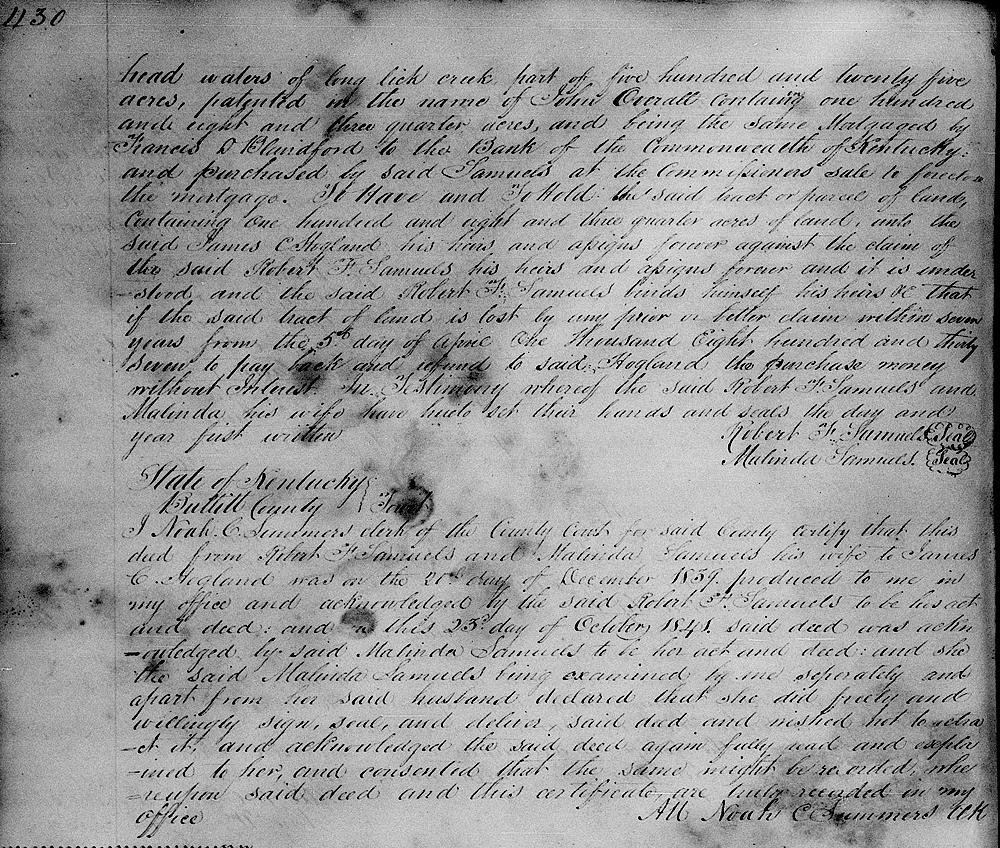 430
head waters of long lick creek part of five hundred and twenty five
acres, patented in the name of John Overall containing one hundred
and eight and three quarter acres, and being the same Mortgaged by
Francis D Blandford to the Bank of the Commonwealth of Kentucky
and purchased by said Samuels at the Commissioners sale to foreclose
the mortgage. To Have and To Hold the said tract or parcel of land,
Containing One hundred and eight and three quarter acres of land, unto the
said James C Hogland his heirs and assigns forever against the claim of
the said Robert F. Samuels his heirs and assigns forever and it is under
-stood and the said Robert F. Samuels binds himself his heirs &c that
if the said tract of land is lost by any prior or better claim within seven
years from the 5th day of April One Thousand Eight hundred and thirty
seven, to pay back and refund to said Hogland the purchase money
without Interest. In Testimony whereof the said Robert F. Samuels and
Malinda his wife have hereto set their hands and seals the day and
year first written
Robert F. Samuels Seal
Malinda Samuels. Seal
State of Kentucky
Bullitt County
I Noah C. Summers clerk of the County Court for said County certify that this
deed from Robert F Samuels and Malinda Samuels his wife to James
C. Hogland was on the day of December 1839. produced to me in
my office and acknowledged by the said Robert F. Samuels to be his act
and deed: and on this 23d day of October 1841. said deed was ackn
-owledged by said Malinda Samuels to be her act and deed: and she
the said Malinda Samuels being examined by me seperately and
apart from her said husband declared that she did freely and
willingly sign, seal, and deliver, said deed and wished not to retra
-ct it, and acknowledged the said deed again fully read and expla
-ined to her, and consented that the same might be recorded, whe
-reupon said deed and this certificate are truly recorded in my
office
Att Noah C Summers Clk